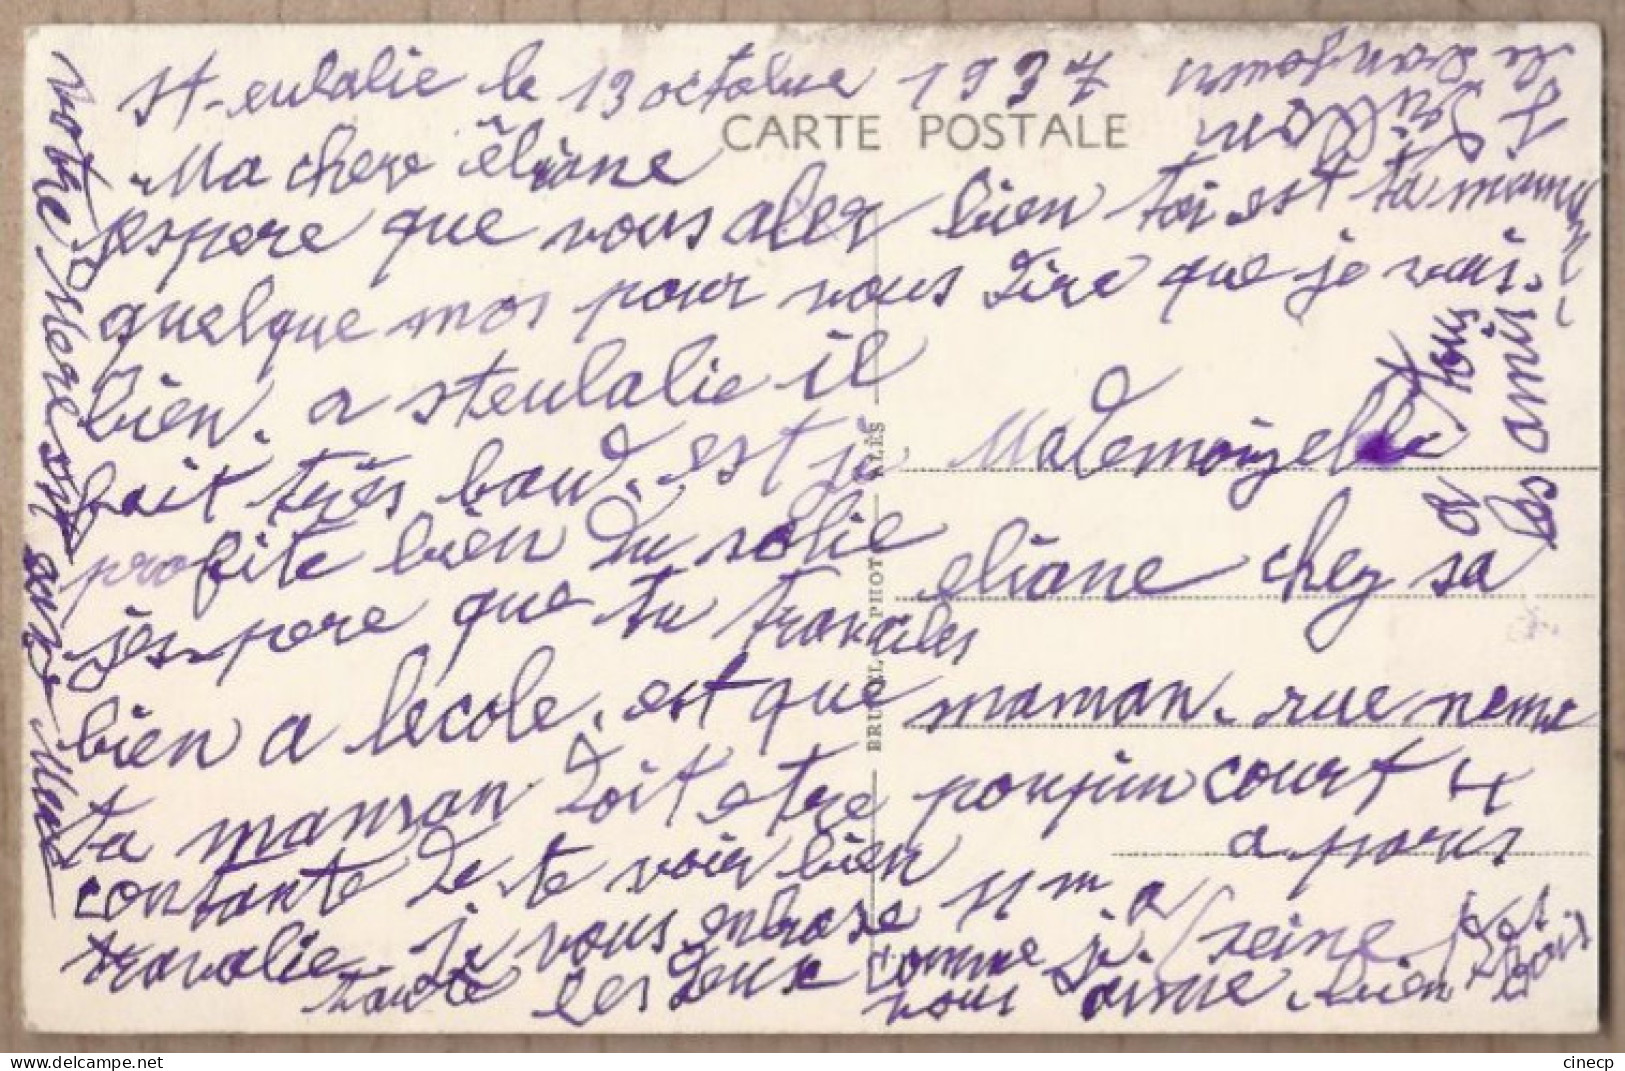 St-eulalie le 13 octobre 1937
CARTE POSTALE
Ma chere êliane
jespere que vous aler bien toi est ta maman
quelque mos pour vous dire que je vais
bien. a steulalie il
fait très baud. est je
profite bien du solie
jespere que tu travailes
bien a lecole. est que
ta maman doit etre
contante de te voir bien
travalie. je vous enbrase
toute les deux comme je
vous aime bien
Mademoizelle
eliane chez sa
maman. rue neme
poujincourt 4
a paris
seine
a tous
les amis
BRUNEL PHOT ALÈS
cinecp